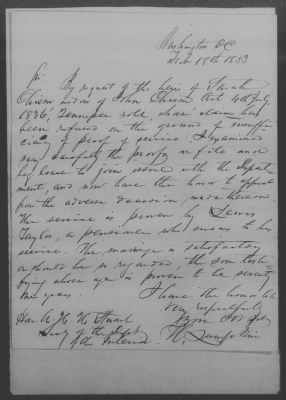 Washington DC
Feb 15th 1853
Sir
By request of the heirs of Sarah
widow of John Act 4th July,
1836, roll, whose claim has
been refused on the ground of
of proof of service, I examined
very carefully the proofs on file and
beg leave to join issue with the Depart
ment, and now have the honor to appeal
from the adverse decision made thereon.
The service is proven by Lewis
Taylor, a pensioner who swears to his
service. The marriage is satisfactory
or should be so regarded, the son testi
fying whose age is proven to be seventy
two years.
I have the honor to be
very respectfully
Your Obt Svt
Hon A. H. H. Stuart
Secy of the Dept
of the Interior